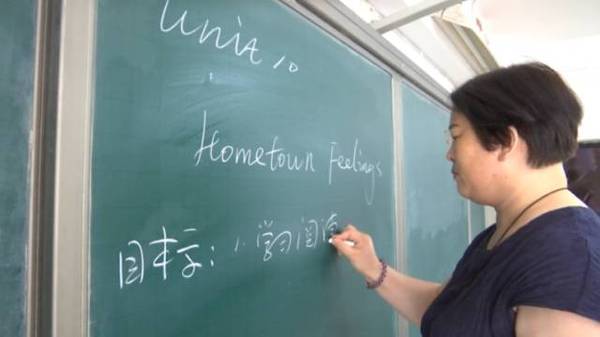 Unit 10
Hometown Feelings
目标：1. 学习阅读